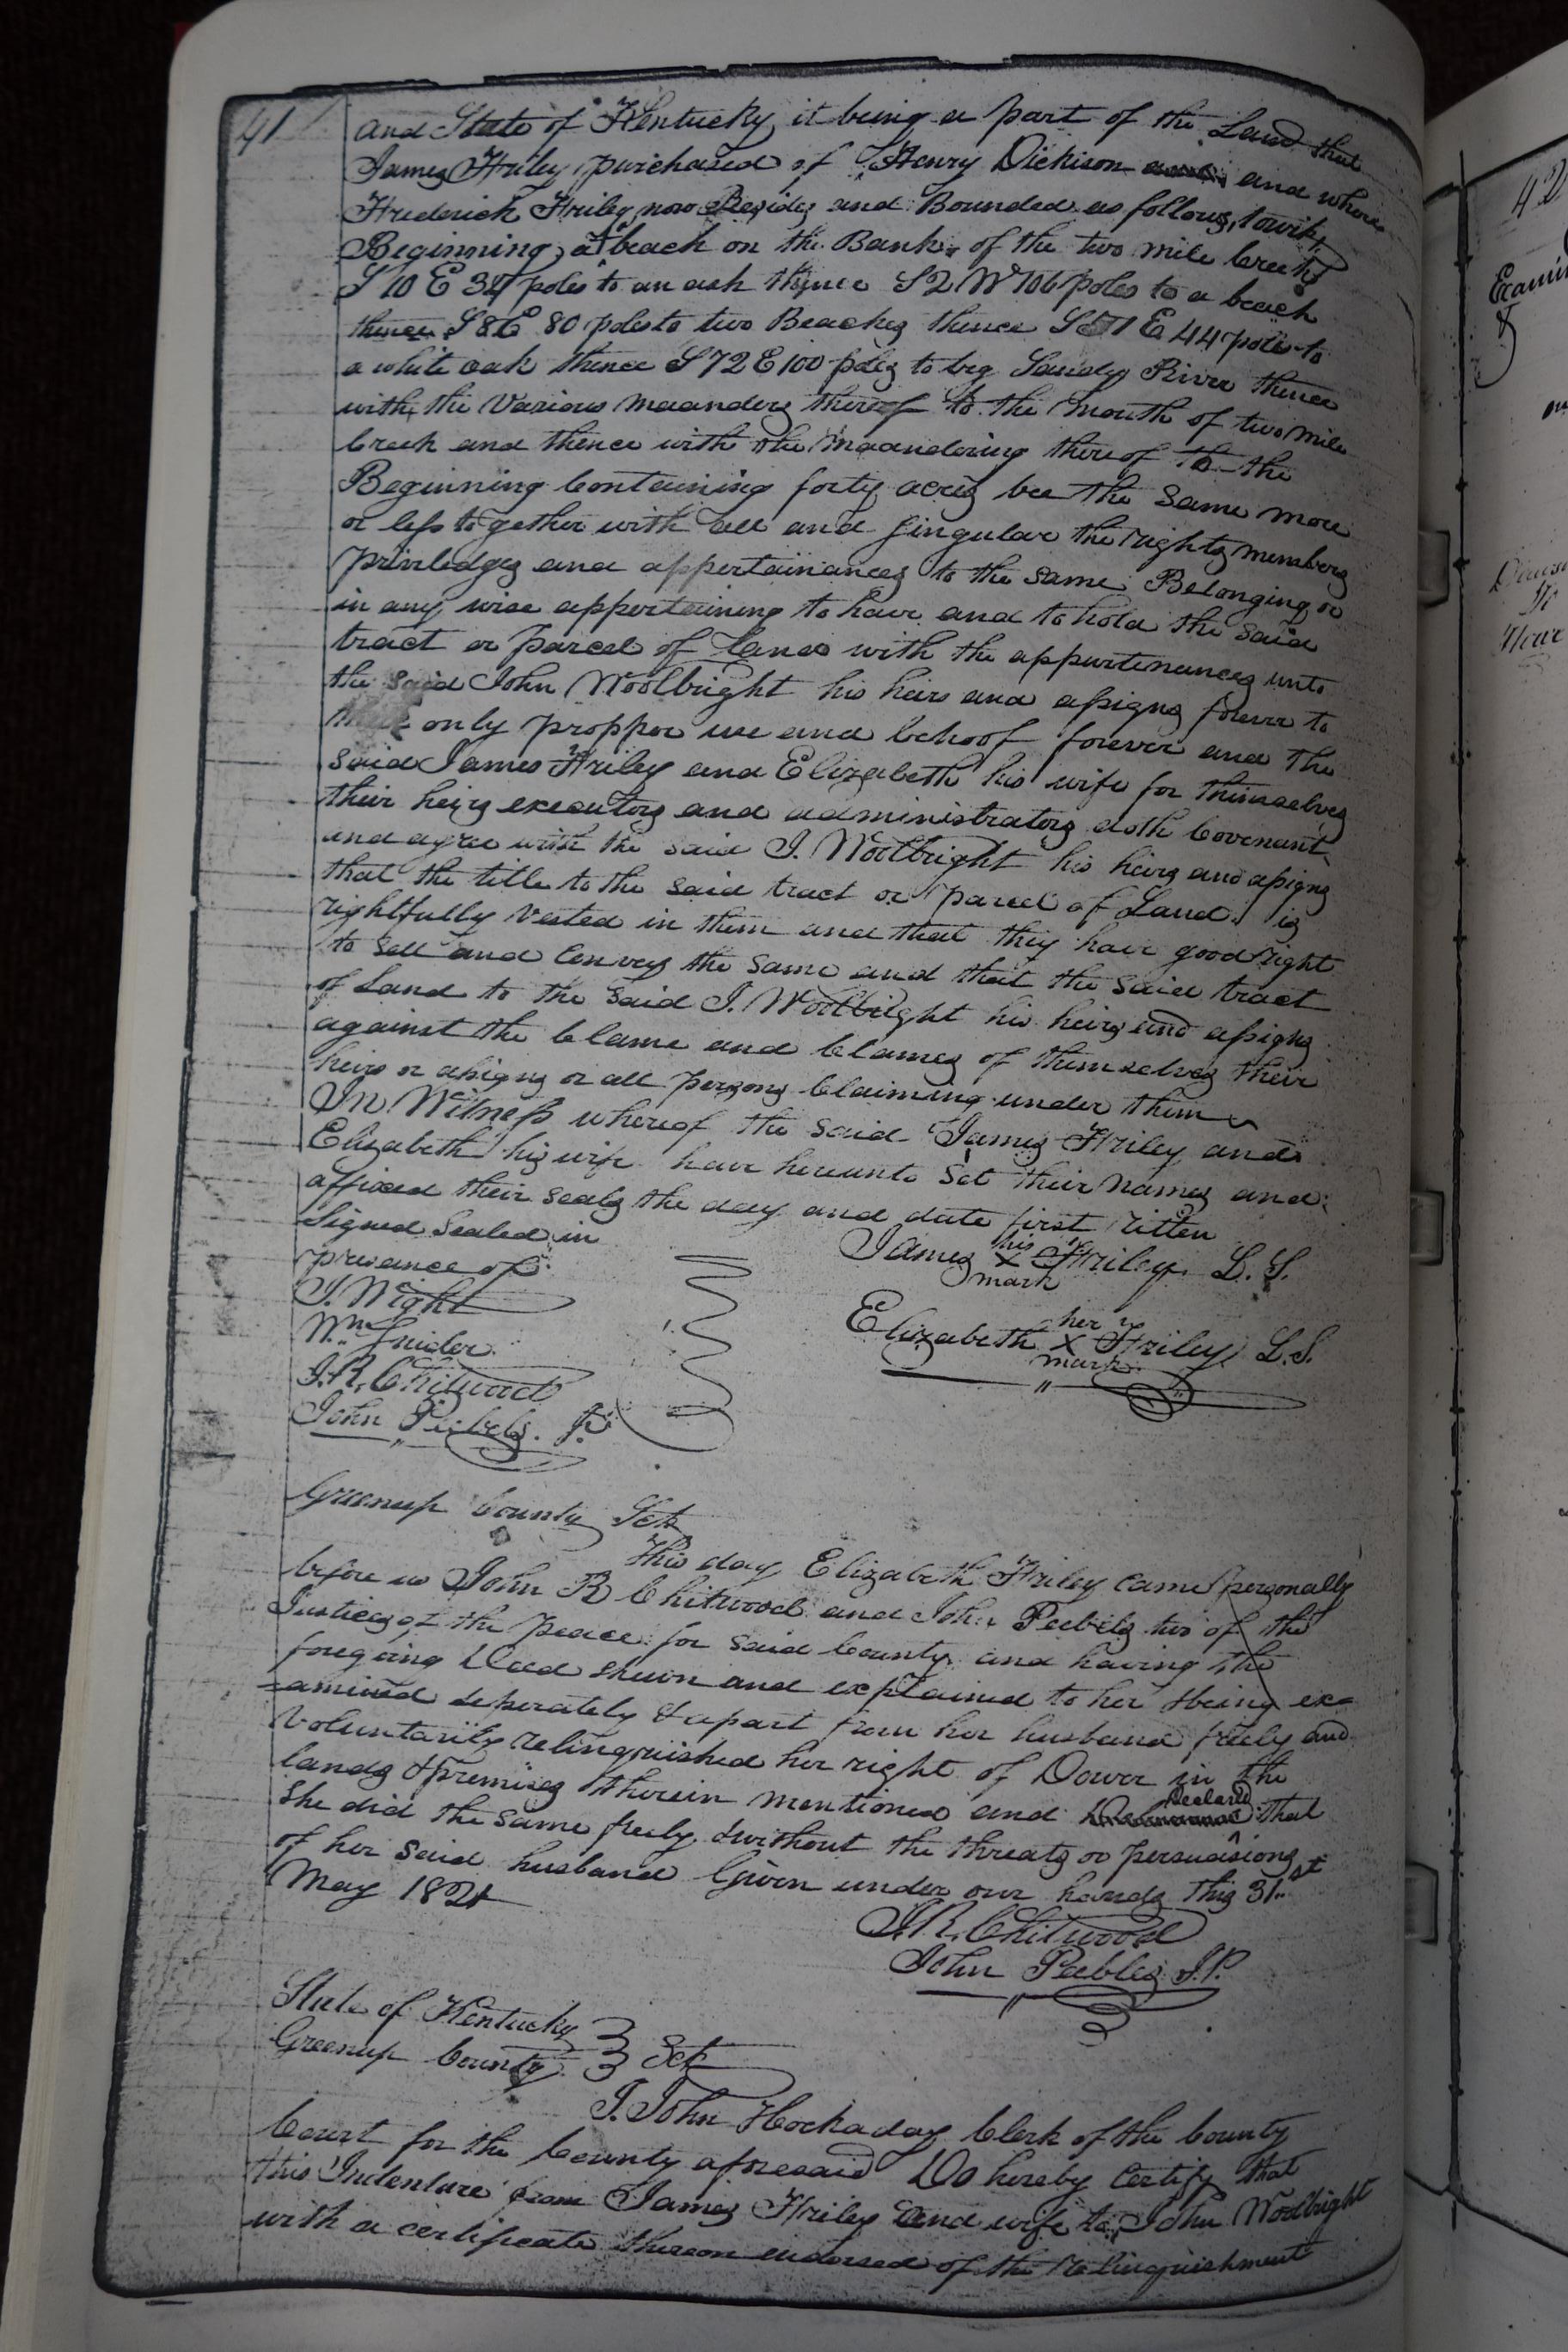 41
and State of Kentucky, it being a part of the Land that
James Friley purchased of Henry Dickison and where
Frederick Friley now Resides and Bounded as follows, towit,
Beginning at beach on the Bank of the two mile Creek
S 10 E 34 poles to an ash thence S 2 W 106 poles to a beach
thence S 8 E 80 poles to two Beaches thence S 51 E 44 poles to
a white oak thence S 72 E 100 poles to big Sandy River thence
with the Various maanders thereof to the mouth of two mile
Creek and thence with the maandering thereof to the
Beginning Containing forty acres bee the same more
or less together with all and singular the rights members
priviledges and appertainances to the same Belonging or
in any wise appertaining to have and to hold the said
tract or parcel of land with the appurtenances unto
the said John Woolbright his heirs and assigns forever to
only propper use and behoof forever and the
said James Friley and Elizabeth his wife for themselves
their heirs executors and administrators doth Covenant
and agree with the said J. Woolbright his heirs and assigns
that the title to the said tract or parcel of Land is
rightfully Vested in them and that they have good right
to sell and Convey the same and that the said tract
of Land to the said J. Woolbright his heirs and assigns
against the Clame and Clames of themselves their
heirs or assigns or all persons Claiming under them
In Witness whereof the said James Friley and
Elizabeth his wife have hereunto set their names and
affixed their seals the day and date first ritten
Signed Sealed in
presence of
J. Wight
Wm Snider
J. R. Chitwood
John Peebels. JP
his
James X Friley L. S.
mark
her
Elizabeth X Friley L.S.
mark
Greenup County Sct
This day Elizabeth Friley came personally
before us John R Chitwood and John Peebels two of the
Justices of the peace for said County and having the
foregoing Deed shewn and explained to her & being ex=
=amined seperately & apart from her husband freely and
Voluntarily relinquished her right of Dower in the
lands & premises therein mentioned and Declared that
she did the same freely & without the threats or persuasions
of her said husband Given under our hands this 31st
May 1821
J. R. Chitwood
John Peebles J.P.
State of Kentucky
Greenup County Sct
I. John Hockaday Clerk of the County
Court for the County aforesaid Do hereby Certify that
this Indenture from James Friley and wife to John Woolbright
with a certificate thereon endorsed of the relinquishment
42